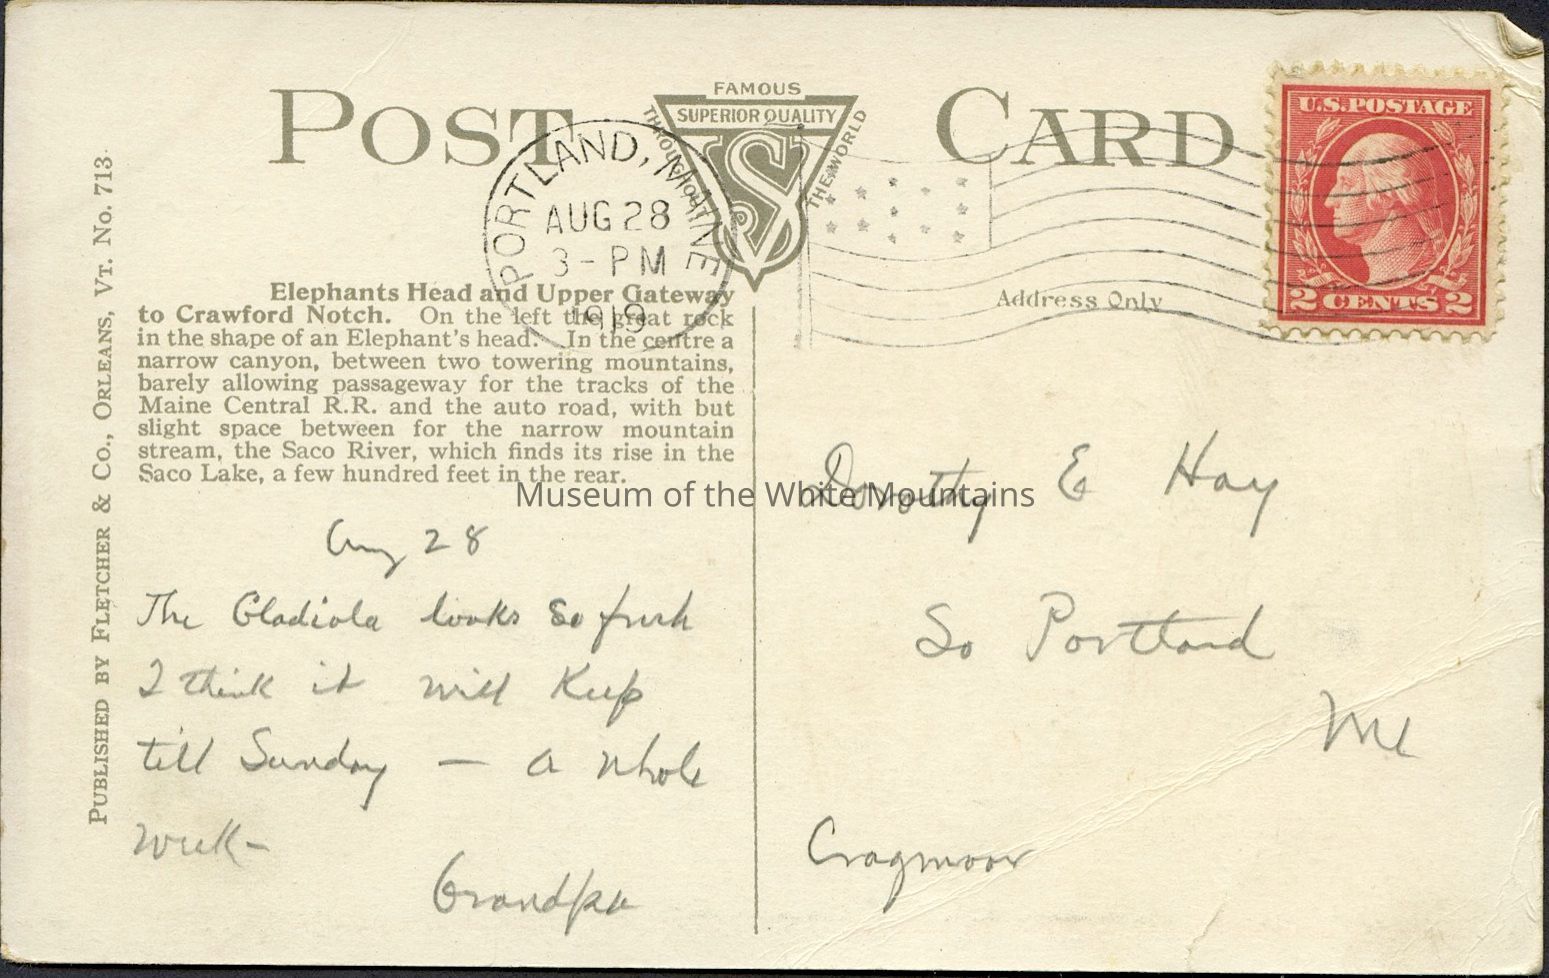 POST CARD
FAMOUS
SUPERIOR QUALITY
THROUGHOUT
THE WORLD
U.S. POSTAGE
2 CENTS 2
PORTLAND, MAINE
AUG 28
3 - PM
1919
Address Only
PUBLISHED BY FLETCHER & CO., ORLEANS, VT. No. 713.
Elephants Head and Upper Gateway
to Crawford Notch. On the left the great rock
in the shape of an Elephant's head. In the centre a
narrow canyon, between two towering mountains,
barely allowing passageway for the tracks of the
Maine Central R.R. and the auto road, with but
slight space between for the narrow mountain
stream, the Saco River, which finds its rise in the
Saco Lake, a few hundred feet in the rear.
Museum of the White Mountains
Aug 28
The Gladiola looks so fresh
I think it will Keep
till Sunday — a whole
week —
Grandpa
Dorothy E Hay
So Portland
Me
Cragmoor